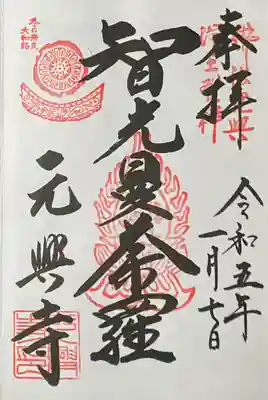 奉拝
令和五年
一月七日
智光曼荼羅
元興寺